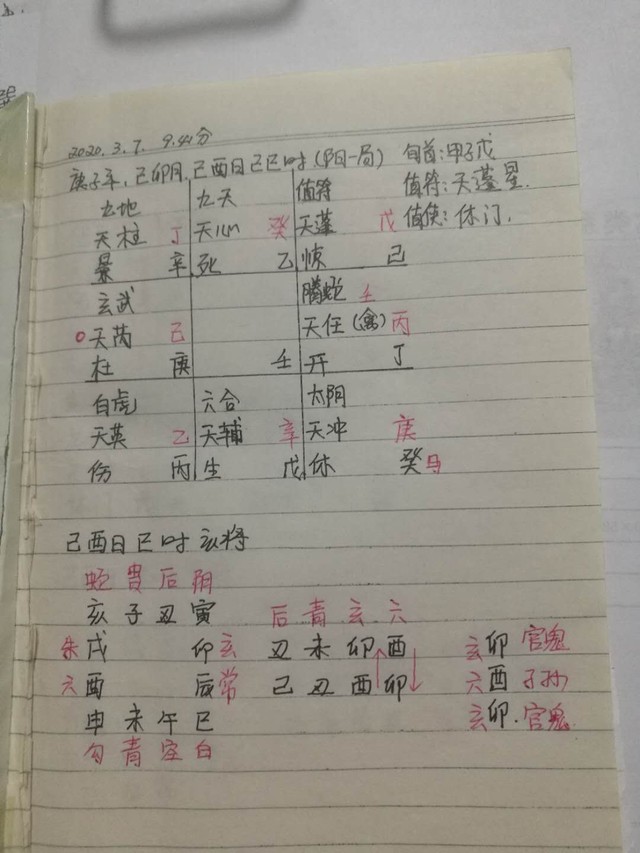 2020. 3. 7. 9.41分
庚子年,己卯月,己酉日己巳时(阳一局) 旬首:甲子戊
九地 九天 值符 值符:天蓬星
天柱 丁 天心 癸 天蓬 戊 值使:休门.
景 辛 死 乙 惊 己
玄武 腾蛇 壬
天芮 己 天任(禽) 丙
杜 庚 壬 开 丁
白虎 六合 太阴
天英 乙 天辅 辛 天冲 庚
伤 丙 生 戊 休 癸 马
己酉日巳时亥将
蛇 贵 后 阴
亥 子 丑 寅 后 青 玄 六
朱 戌 卯 玄 丑 未 卯 酉 玄 卯 官鬼
六 酉 辰 常 己 丑 酉 卯 六 酉 子孙
申 未 午 巳 玄 卯. 官鬼
勾 青 空 白